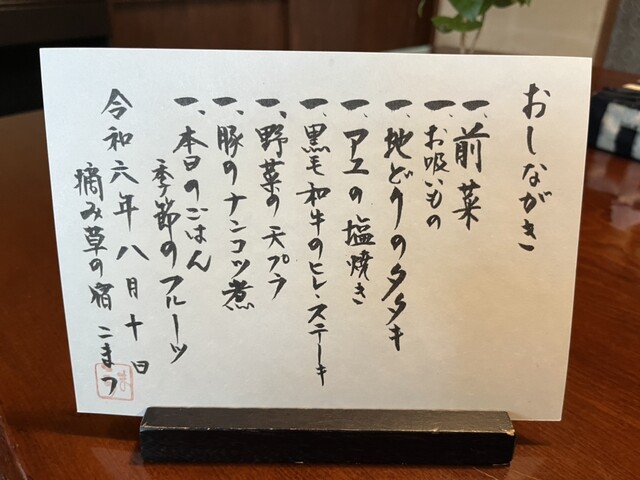 おしながき
一、前菜
一、お吸いもの
一、地どりのタタキ
一、アユの塩焼き
一、黒毛和牛のヒレステーキ
一、野菜の天プラ
一、豚のナンコツ煮
一、本日のごはん
季節のフルーツ
令和六年八月十日
摘み草の宿こまつ